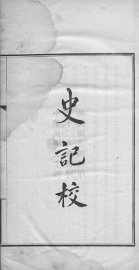 史記校